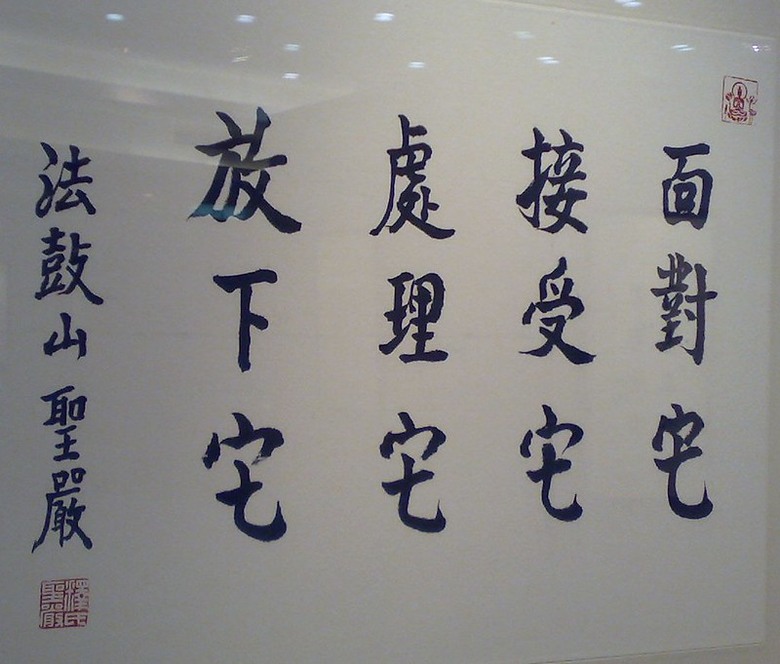 面對它
接受它
處理它
放下它
法鼓山 聖嚴
釋氏聖嚴